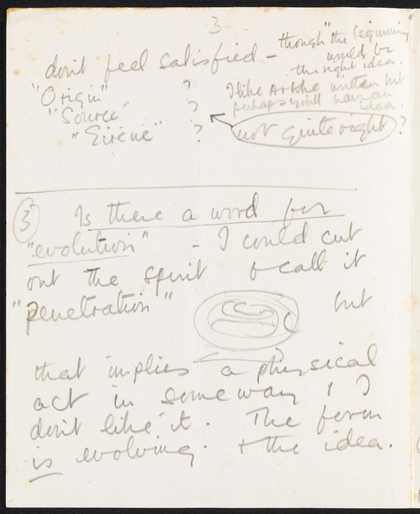 3
though "the beginning
would be
the right idea.
don't feel satisfied -
"Origin" ?
"Source" ?
"Eirene" ?
I like Arkhe written but
perhaps you'll have an
idea
not quite right ?
3 Is there a word for
"evolution" - I could cut
out the spirit & call it
"penetration" but
that implies a physical
act in some way, & I
don't like it. The form
is evolving. + the idea.